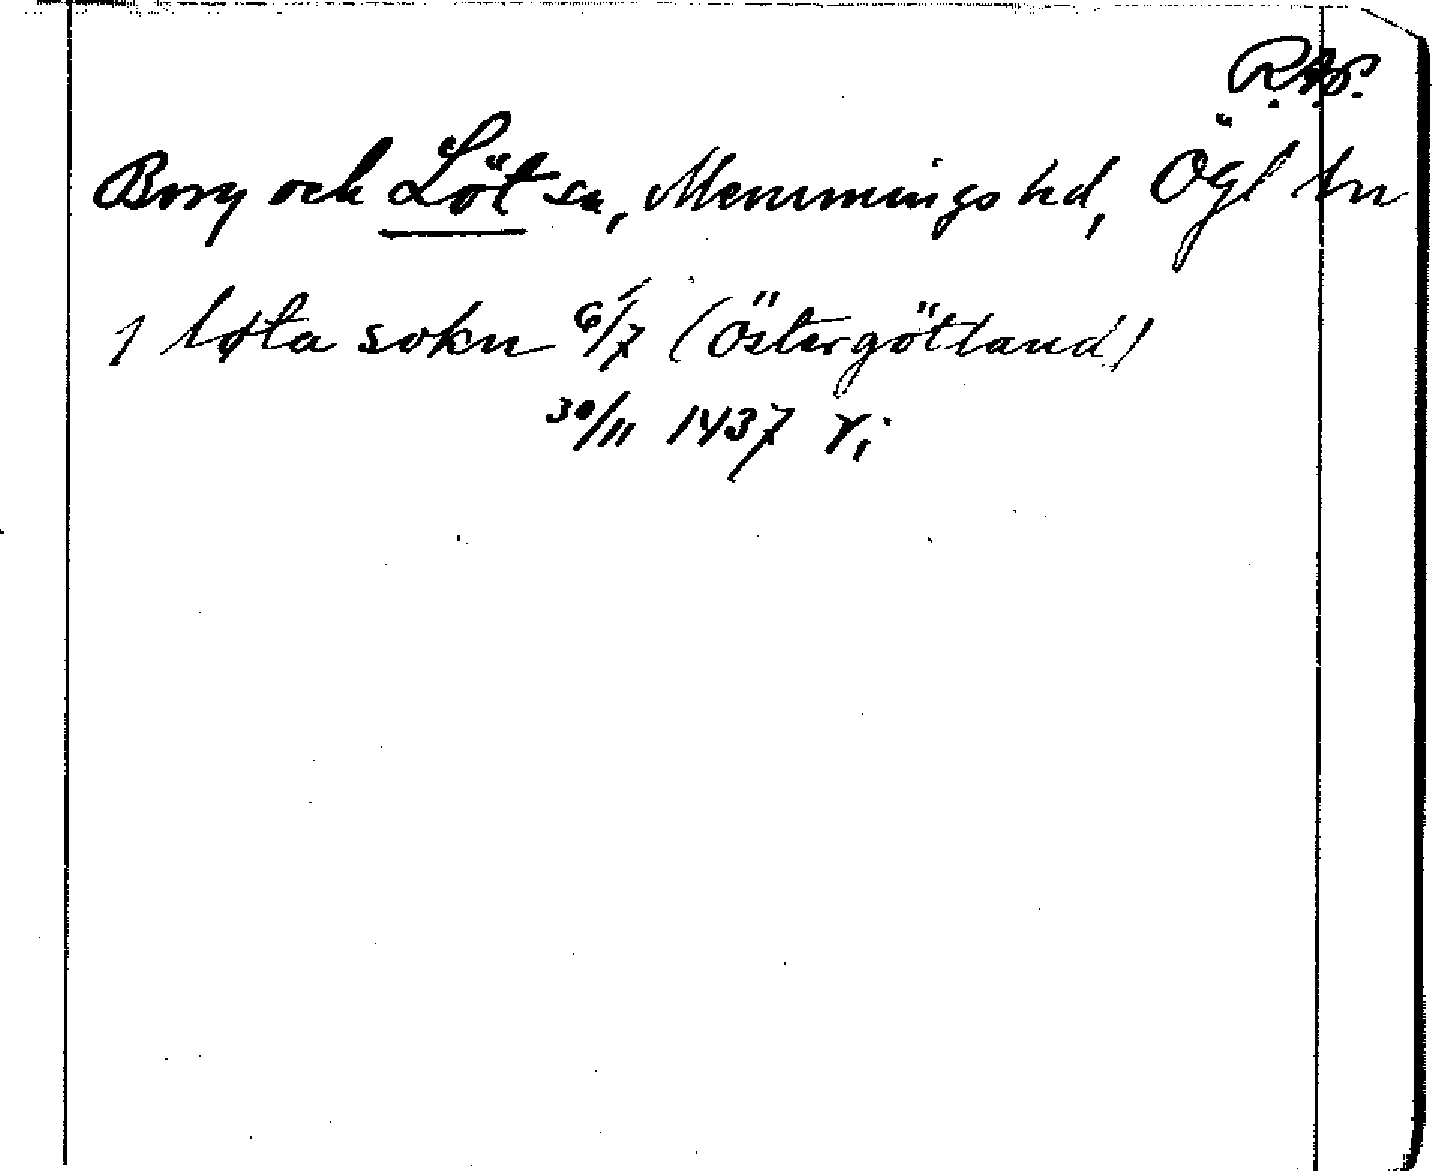 R.A.P.
Borg och Löt sn, Memmings hd, Ögl ln
j løta sokn 6/7 (Östergötland)
30/11 1437